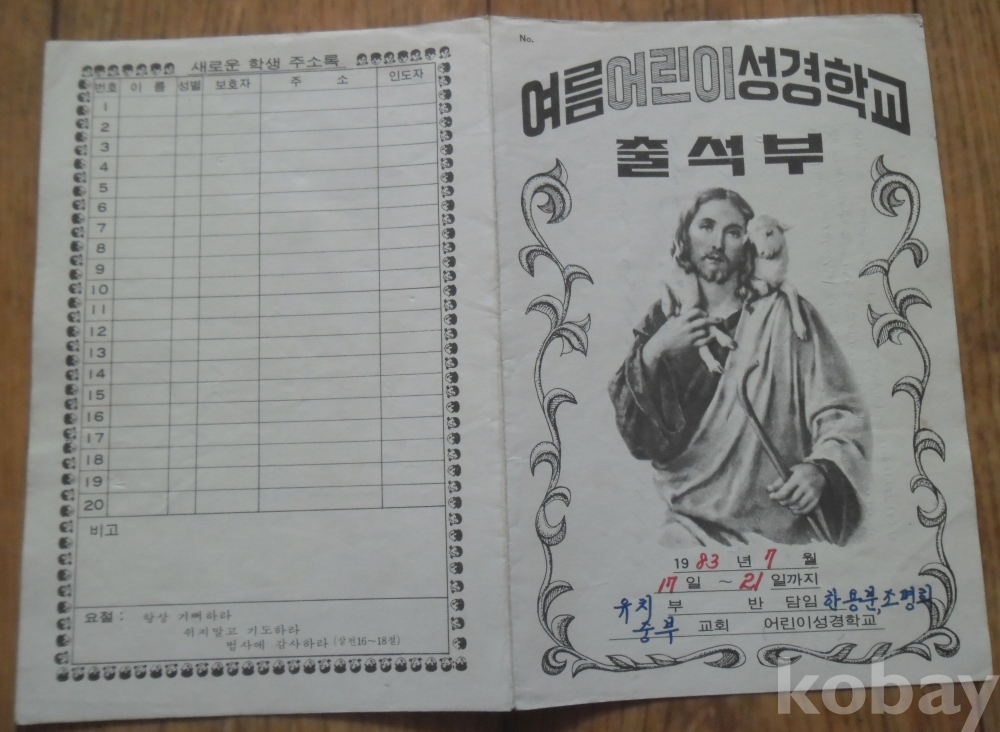 새로운 학생 주소록
번호 이 름 성별 보호자 주 소 인도자
1
2
3
4
5
6
7
8
9
10
11
12
13
14
15
16
17
18
19
20
비고
요절 : 항상 기뻐하라
쉬지말고 기도하라
범사에 감사하라 (살전16~18절)
No.
여름어린이성경학교
출석부
1983년 7월
17일 ~ 21일까지
유치부 반 담임 한용문, 조명희
중부 교회 어린이성경학교
kobay